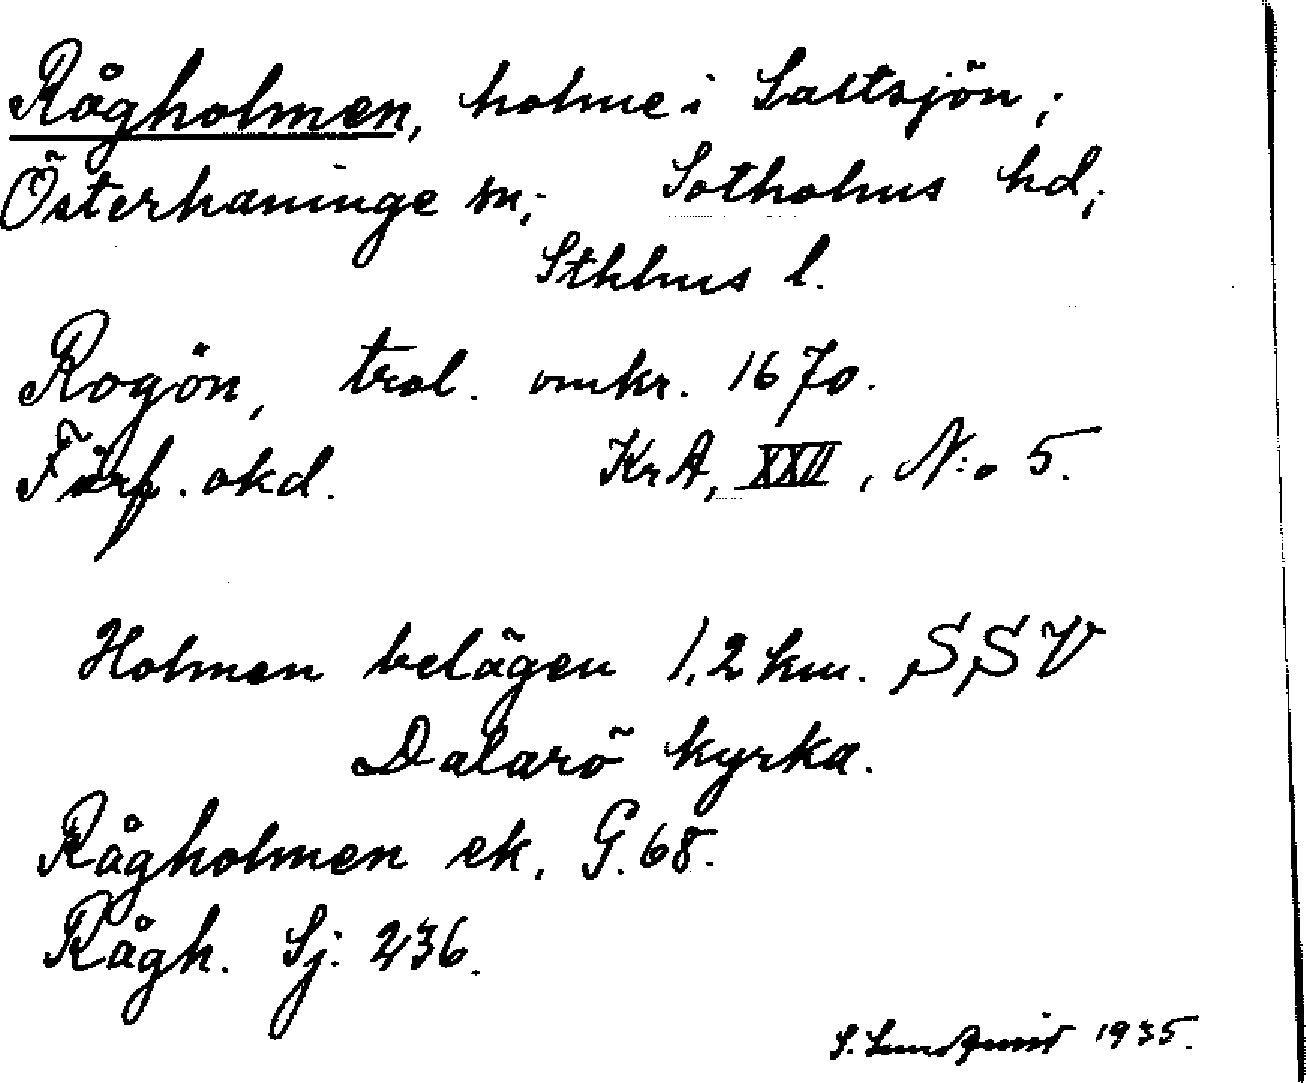 Rågholmen, holme i Saltsjön;
Österhaninge sn; Sotholms hd;
Sthlms l.
Rogön, trol. omkr. 1670.
Förf. okd. KrA, XXII, N:o 5.
Holmen belägen 1,2 km. SSV
Dalarö kyrka.
Rågholmen ek. G. 68.
Rågh. Sj. 236.
S. Lundqvist 1935.